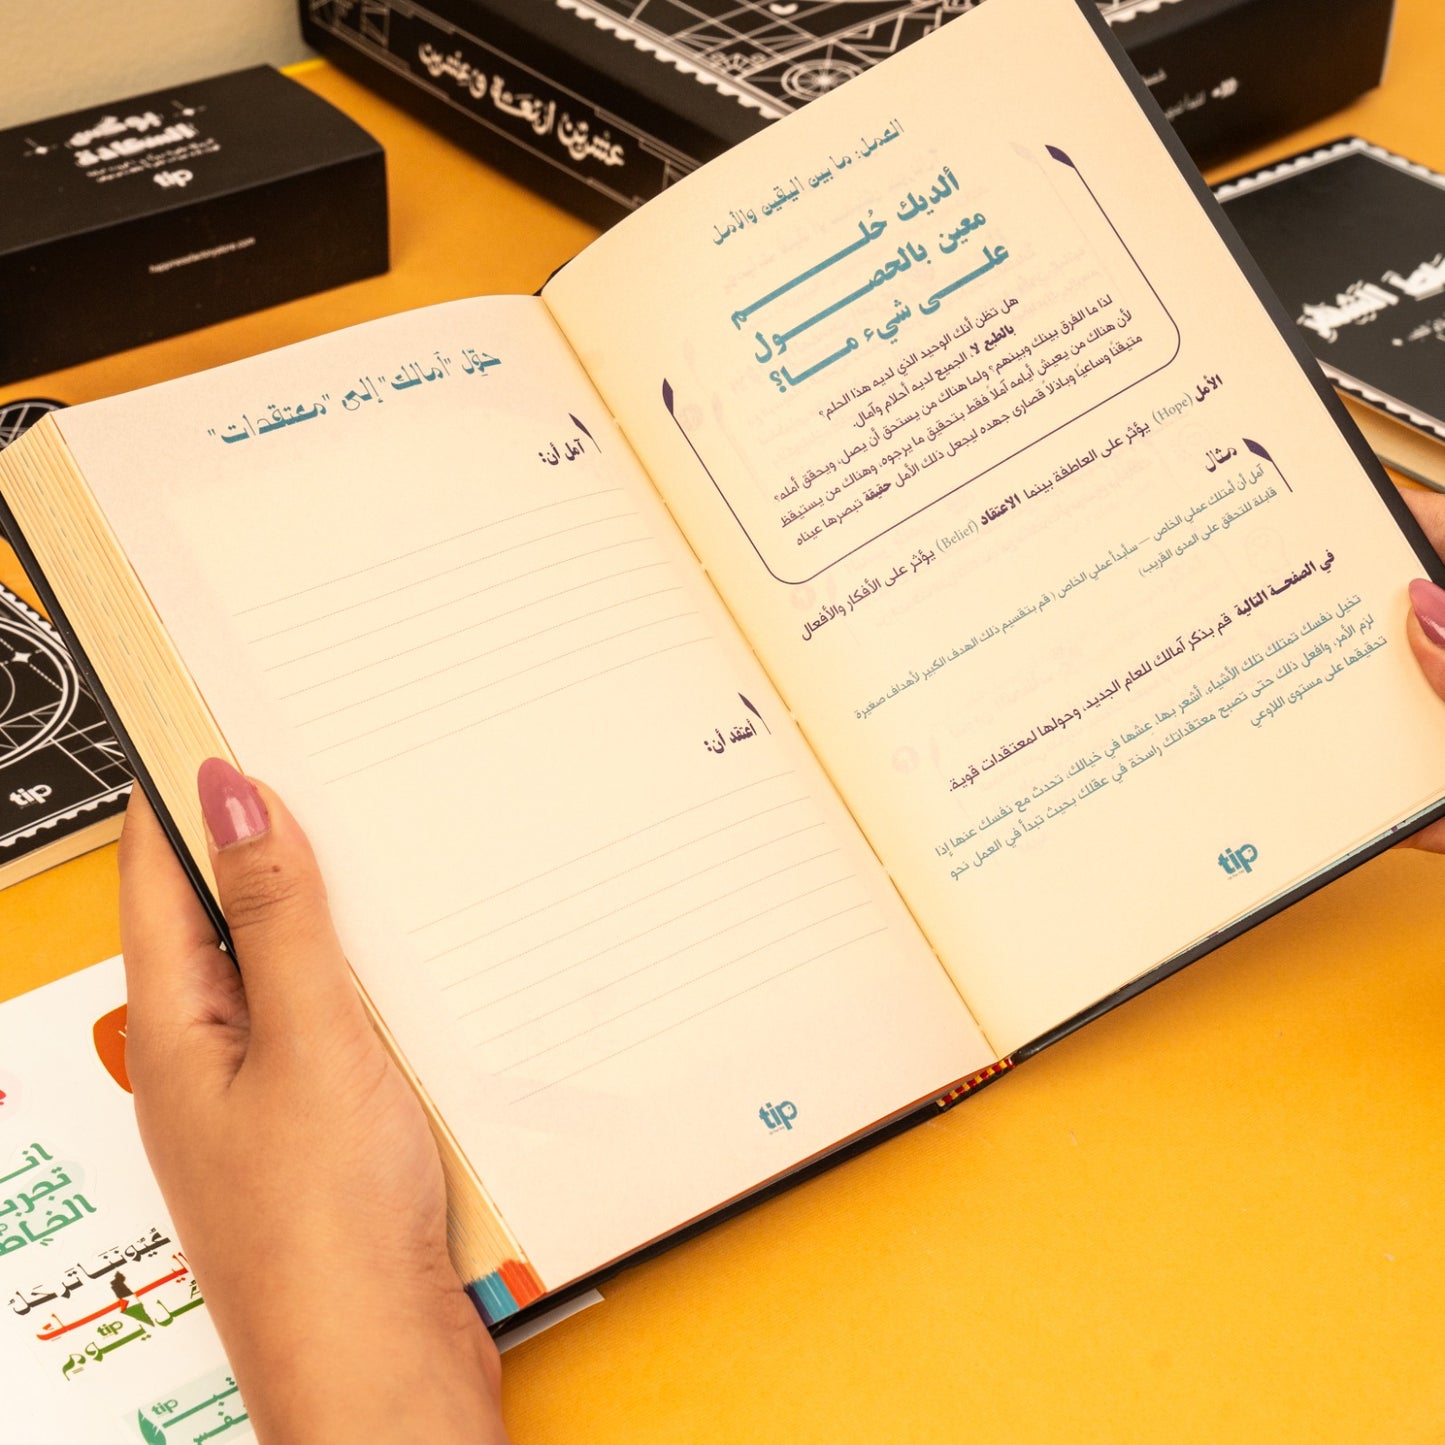 العمل: ما بين اليقين والأمل
ألديك حُلم
معين بالحصول
على شيء ما؟
هل تظن أنك الوحيد الذي لديه هذا الحلم؟
بالطبع لا. الجميع لديه أحلام وآمال.
لذا ما الفرق بينك وبينهم؟ ولما هناك من يستحق أن يصل، ويحقق أمله؟
لأن هناك من يعيش أيامه آملاً فقط بتحقيق ما يرجوه، وهناك من يستيقظ
متيقناً وساعياً وباذلاً قصارى جهده ليجعل ذلك الأمل حقيقة تبصرها عيناه
الأمل (Hope) يؤثر على العاطفة بينما الاعتقاد (Belief) يؤثر على الأفكار والأفعال
مثال
آمل أن أمتلك عملي الخاص — سأبدأ عملي الخاص (قم بتقسيم ذلك الهدف الكبير لأهداف صغيرة
قابلة للتحقق على المدى القريب)
في الصفحة التالية قم بذكر آمالك للعام الجديد، وحولها لمعتقدات قوية.
تخيل نفسك تمتلك تلك الأشياء، أشعر بها، عشها في خيالك، تحدث مع نفسك عنها إذا
لزم الأمر، وافعل ذلك حتى تصبح معتقداتك راسخة في عقلك بحيث تبدأ في العمل نحو
تحقيقها على مستوى اللاوعي
tip
حوّل "آمالك" إلى "معتقدات"
آمل أن:
أعتقد أن:
tip
بوكس
السعادة
tip
عشرين أربعة وعشرين
tip
عيوننا ترحل
إليك
كل يوم
tip
tip